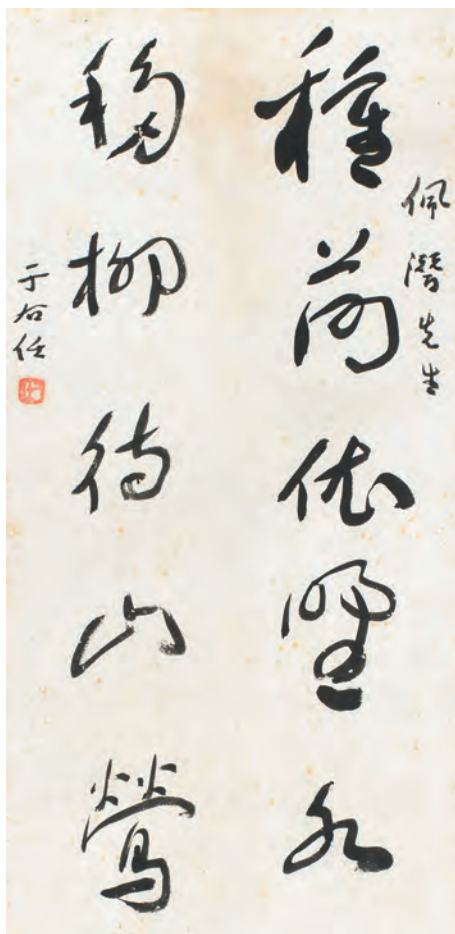 佩潛先生
種荷依野水
移柳待山鶯
于右任